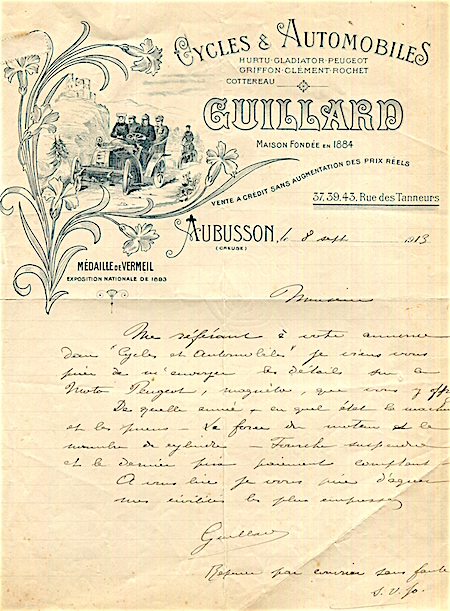 CYCLES & AUTOMOBILES
HURTU-GLADIATOR-PEUGEOT
GRIFFON-CLÉMENT-ROCHET
COTTEREAU
GUILLARD
MAISON FONDÉE EN 1884
VENTE A CRÉDIT SANS AUGMENTATION DES PRIX RÉELS
37, 39, 43, Rue des Tanneurs
AUBUSSON, le 8 sept 1913
(CREUSE)
MÉDAILLE DE VERMEIL
EXPOSITION NATIONALE DE 1893
Monsieur
Me référant à votre annonce
dans "Cycles et Automobiles" je viens vous
prier de m'envoyer les détails sur
Moto Peugeot, magnéto, que vous y
De quelle année - en quel état la machine
et les pneus - La force du moteur et le
nombre de cylindre - Fourche suspendue
et le dernier prix paiement comptant
A vous lire je vous prie d'agréer
mes civilités les plus empressées
Guillard
Réponse par courrier sans faute
S.V.P.